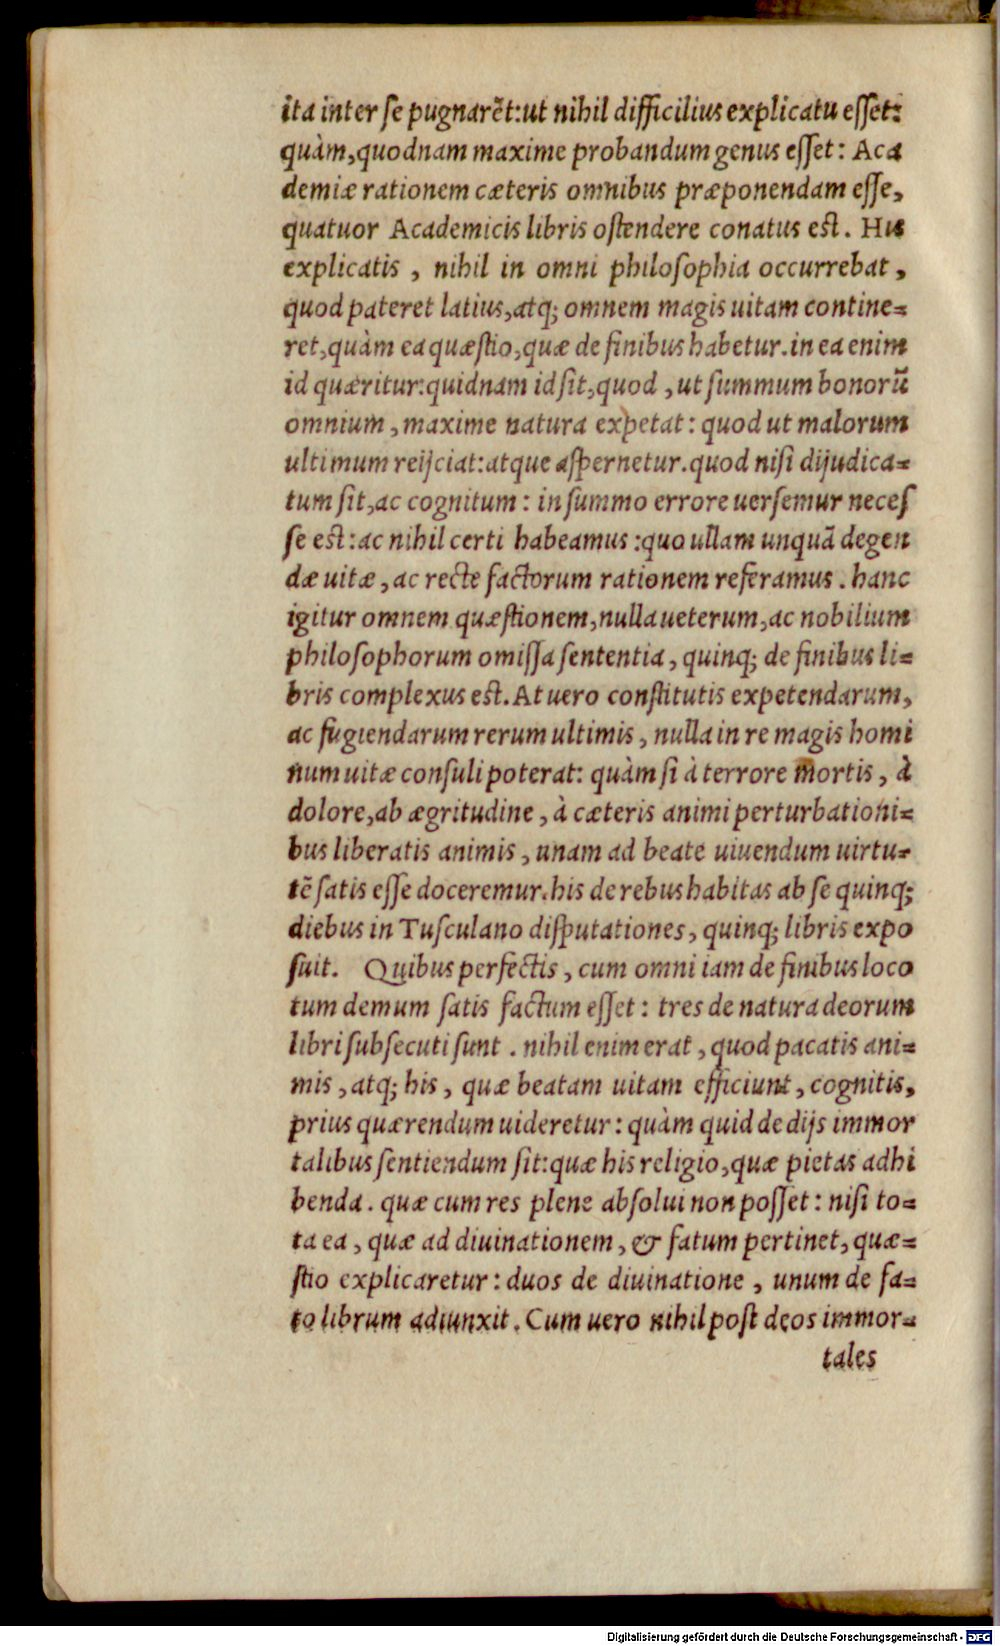 ita inter ſe pugnarẽt:ut nihil difficilius explicatu eſſet:
quàm,quodnam maxime probandum genus eſſet: Aca
demiæ rationem cæteris omnibus præponendam eſſe,
quatuor Academicis libris oſtendere conatus eſt. His
explicatis , nihil in omni philoſophia occurrebat ,
quod pateret latius,atq; omnem magis uitam contine=
ret,quàm ea quæſtio,quæ de finibus habetur.in ea enim
id quæritur:quidnam id ſit,quod , ut ſummum bonorũ
omnium , maxime natura expetat : quod ut malorum
ultimum reijciat:atque aſpernetur.quod niſi dijudica=
tum ſit,ac cognitum : in ſummo errore uerſemur neceſ
ſe eſt:ac nihil certi habeamus :quo ullam unquã degen
dæ uitæ , ac recte factorum rationem referamus . hanc
igitur omnem quæſtionem,nulla ueterum,ac nobilium
philoſophorum omiſſa ſententia , quinq; de finibus li=
bris complexus eſt. At uero conſtitutis expetendarum,
ac fugiendarum rerum ultimis , nulla in re magis homi
num uitæ conſuli poterat: quàm ſi à terrore mortis , à
dolore,ab ægritudine , à cæteris animi perturbationi=
bus liberatis animis , unam ad beate uiuendum uirtu=
tẽ ſatis eſſe doceremur.his de rebus habitas ab ſe quinq;
diebus in Tuſculano diſputationes, quinq; libris expo
ſuit. Quibus perfectis , cum omni iam de finibus loco
tum demum ſatis factum eſſet : tres de natura deorum
libri ſubſecuti ſunt . nihil enim erat , quod pacatis ani=
mis , atq; his , quæ beatam uitam efficiunt , cognitis,
prius quærendum uideretur : quàm quid de dijs immor
talibus ſentiendum ſit:quæ his religio,quæ pietas adhi
benda. quæ cum res plene abſolui non poſſet : niſi to=
ta ea , quæ ad diuinationem , & fatum pertinet, quæ=
ſtio explicaretur : duos de diuinatione , unum de fa=
to librum adiunxit . Cum uero nihil poſt deos immor=
tales
Digitalisierung gefördert durch die Deutsche Forschungsgemeinschaft - DFG